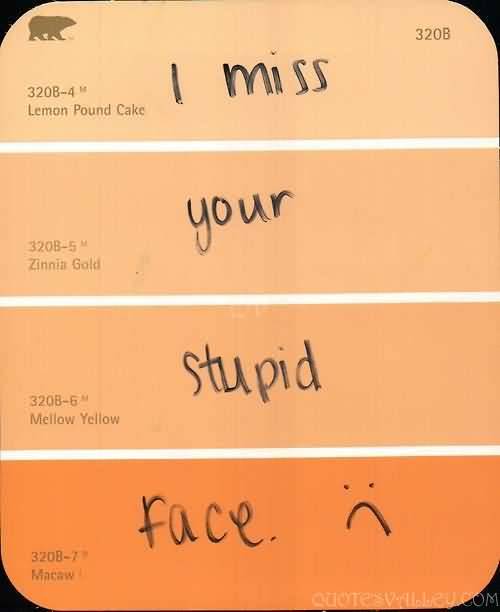 320B
I miss
320B-4 M
Lemon Pound Cake
your
320B-5 M
Zinnia Gold
stupid
320B-6 M
Mellow Yellow
face. :(
320B-7 D
Macaw
QUOTESVALLEY.COM